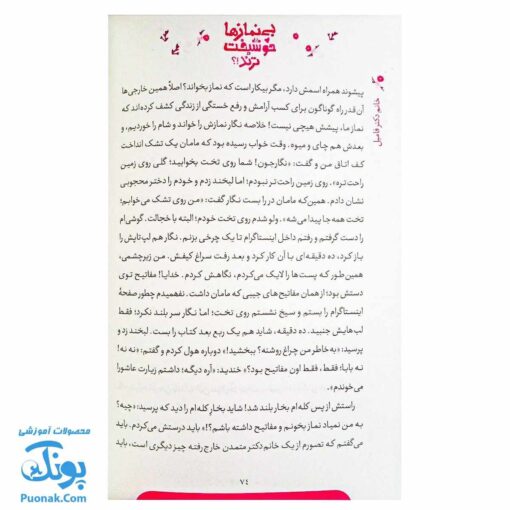 بی‌نمازها
خوشبخت
ترند!؟
خانم دکتر فامیل
پیشوند همراه اسمش دارد، مگر بیکار است که نماز بخواند؟ اصلاً همین خارجی‌ها
آن قدر راه گوناگون برای کسب آرامش و رفع خستگی از زندگی کشف کرده‌اند که
نماز ما، پیشش هیچی نیست! خلاصه نگار نمازش را خواند و شام را خوردیم، و
بعدش هم چای و میوه. وقت خواب رسیده بود که مامان یک تشک انداخت
کف اتاق من و گفت: «نگارجون! شما روی تخت بخوابید؛ گلی روی زمین
راحت‌تره». روی زمین راحت‌تر نبودم؛ اما لبخند زدم و خودم را دختر محجوبی
نشان دادم. همین‌که مامان در را بست نگار گفت: «من روی تشک می‌خوابم؛
تخت همه جا پیدا می‌شه». ولو شدم روی تخت خودم؛ البته با خجالت. گوشی‌ام
را دست گرفتم و رفتم داخل اینستاگرام تا یک چرخی بزنم. نگار هم لپ‌تاپش را
باز کرد، ده دقیقه‌ای با آن کار کرد و بعد رفت سراغ کیفش. من زیرچشمی،
همین‌طور که پست‌ها را لایک می‌کردم، نگاهش کردم. خدایا! مفاتیح توی
دستش بود؛ از همان مفاتیح‌های جیبی که مامان داشت. نفهمیدم چطور صفحهٔ
اینستاگرام را بستم و سیخ نشستم روی تخت؛ اما نگار سر بلند نکرد؛ فقط
لب‌هایش جنبید. ده دقیقه، شاید هم یک ربع بعد کتاب را بست. لبخند زد و
پرسید: «به خاطر من چراغ روشنه؟ ببخشید!» دوباره هول کردم و گفتم: «نه نه!
نه بابا! فقط، فقط اون مفاتیح بود؟» خندید: «آره دیگه؛ داشتم زیارت عاشورا
می‌خوندم».
راستش از پس کله‌ام بخار بلند شد! شاید بخار کله‌ام را دید که پرسید: «چیه؟
به من نمیاد نماز بخونم و مفاتیح داشته باشم؟!» باید درستش می‌کردم. باید
می‌گفتم که تصورم از یک خانم دکتر متمدن خارج رفته چیز دیگری است، باید
۷۴
محصولات آموزشی
پونک
Puonak.Com